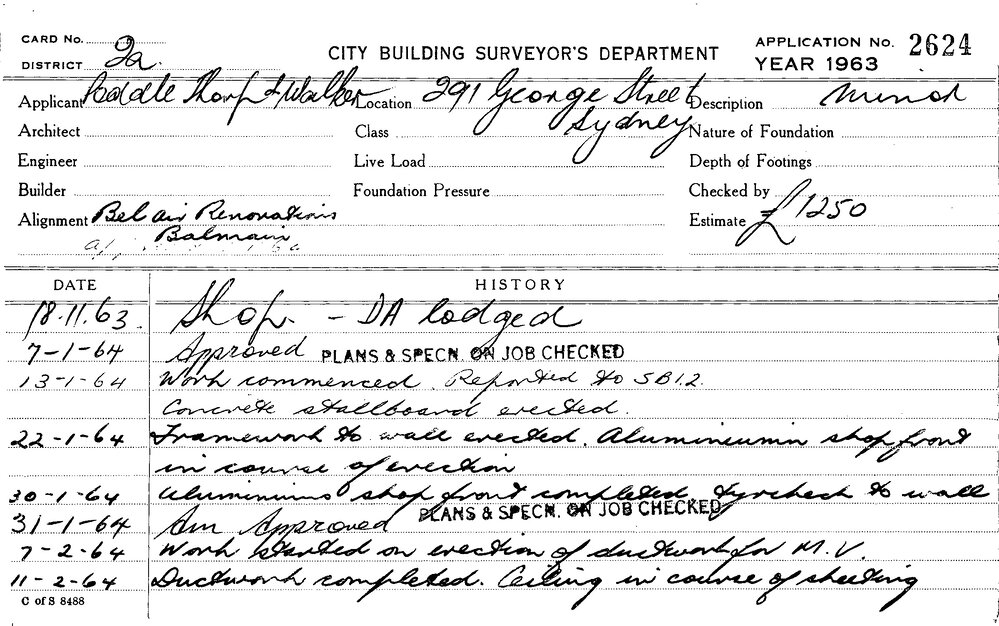 CARD No.
DISTRICT 2a.
CITY BUILDING SURVEYOR'S DEPARTMENT
APPLICATION No. 2624
YEAR 1963
Applicant Peddle Thorp & Walker Location 291 George Street Description Minor
Sydney
Architect Class Nature of Foundation
Engineer Live Load Depth of Footings
Builder Foundation Pressure Checked by
Alignment Bel air Renovations Estimate £1250
Balmain
DATE HISTORY
18.11.63. Shop. - DA lodged
7-1-64 Approved PLANS & SPECN. ON JOB CHECKED
13-1-64 Work commenced. Reported to SB12.
Concrete stallboard erected.
22-1-64 Framework to wall erected. Aluminiumin shop front
in course of erection
30-1-64 Aluminium shop front completed. Gyrchech to wall
PLANS & SPECN. ON JOB CHECKED
31-1-64 Am Approved
7-2-64 Work started on erection of ductwork for M.V.
11-2-64 Ductwork completed. Ceiling in course of sheeting
C of S 8488